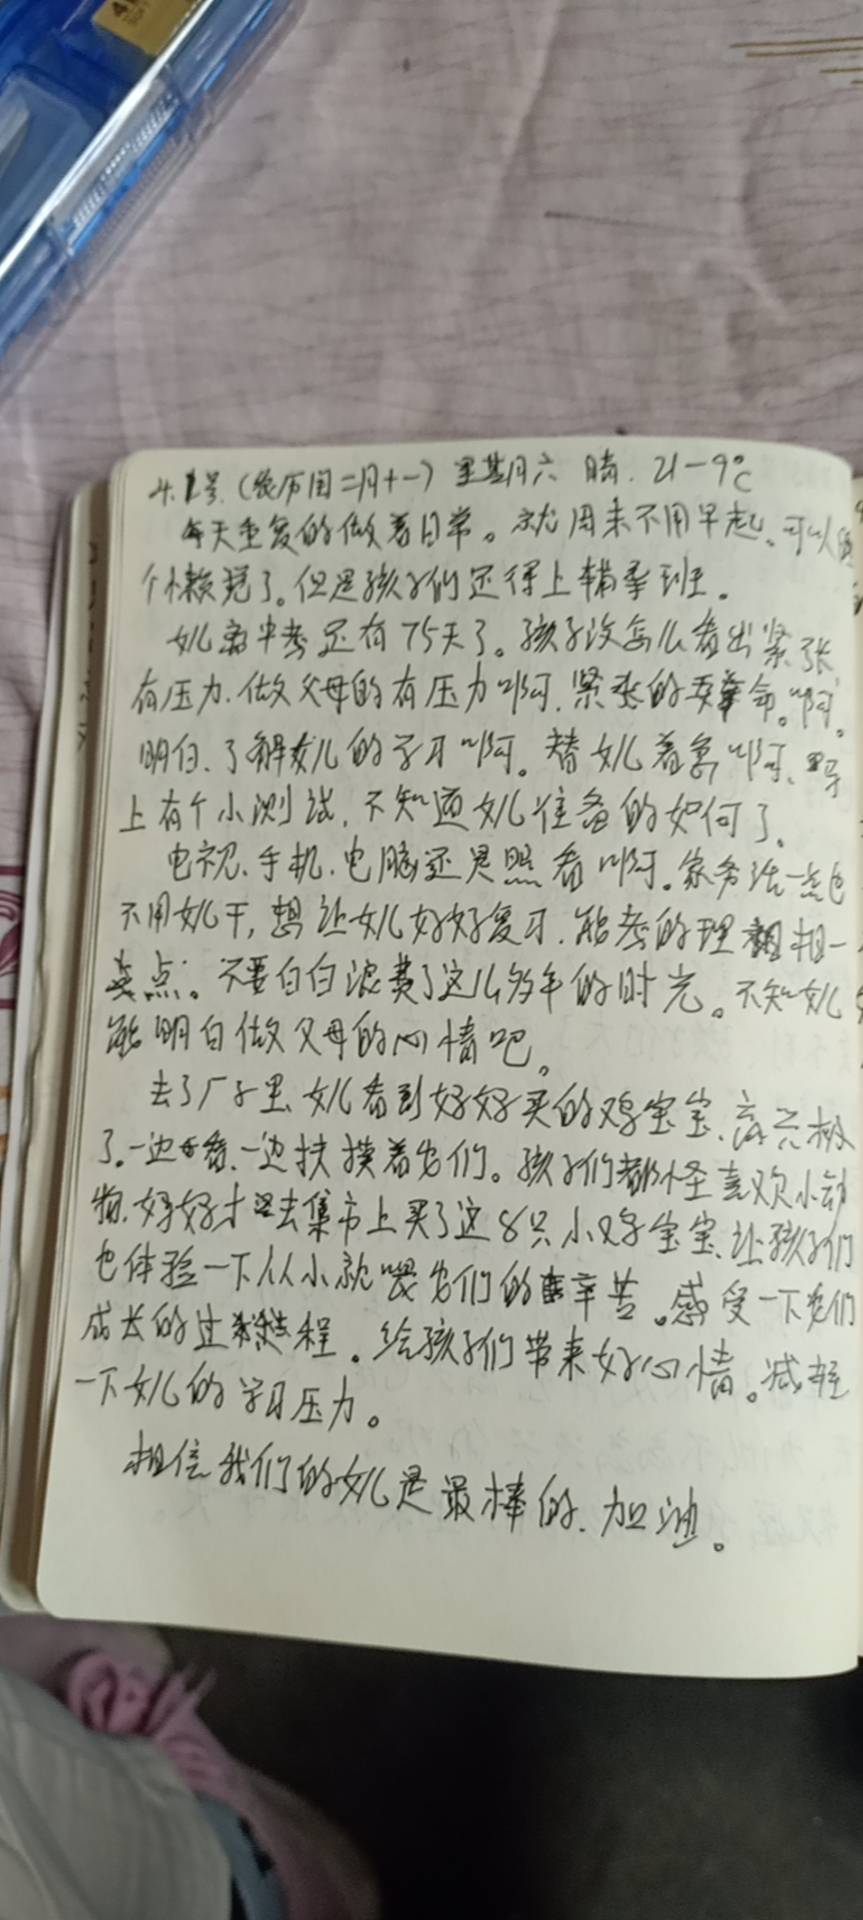 4.1号.(农历闰二月十一) 星期六 晴. 21-9℃
每天重复的做着日常。就周末不用早起、可以睡
个懒觉了。但是孩子们还得上辅导班。
女儿离中考还有75天了。孩子没怎么看出紧张
有压力.做父母的有压力啊.紧张的要命。啊.
明白、了解女儿的学习啊。替女儿着急啊、早
上有个小测试.不知道女儿准备的如何了.
电视、手机.电脑还是照看啊。家务活一点也
不用女儿干,想让女儿好好复习.能考的理想一
点。不要白白浪费了这么多年的时光。不知女儿
能明白做父母的心情吧。
去了厂子里、女儿看到好好买的鸡宝宝、高兴极
了。一边看、一边抚摸着它们。孩子们都怪喜欢小动
物.好好才去集市上买了这8只小鸡宝宝、让孩子们
也体验一下从小就喂它们的辛苦。感受一下它们
成长的过程。给孩子们带来好心情。减轻
一下女儿的学习压力。
相信我们的女儿是最棒的.加油。
4